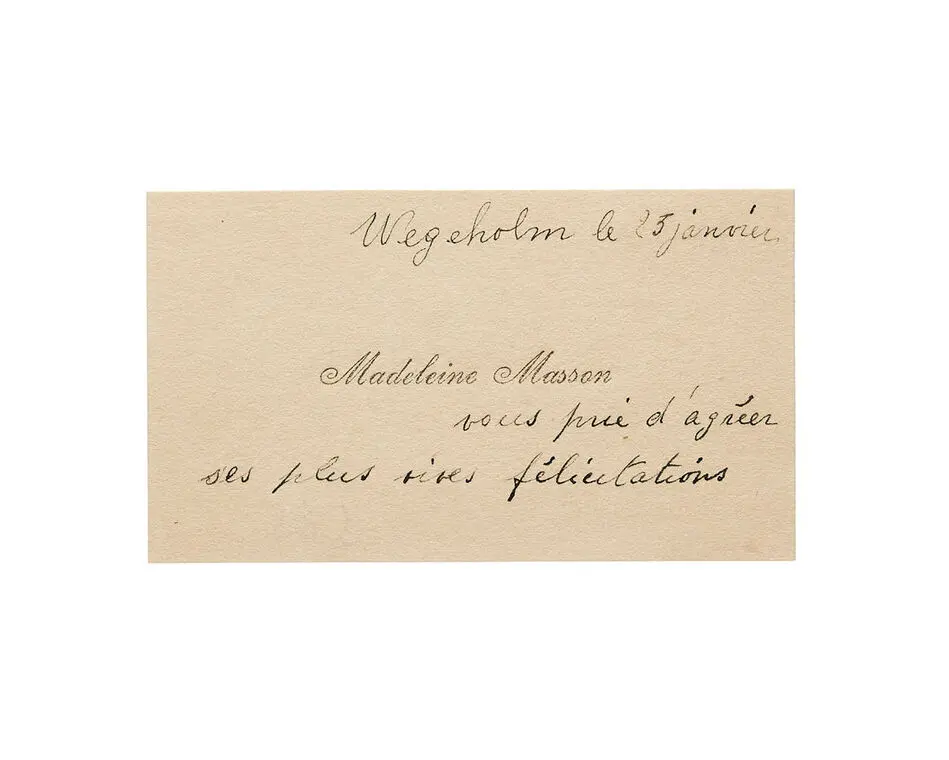 Wegeholm le 25 janvier
Madeleine Masson
vous prie d'agréer
ses plus vives félicitations